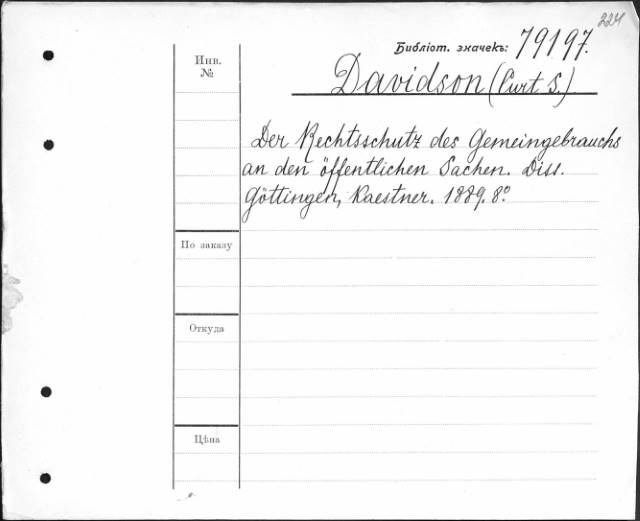 224
Библіот. значекъ: 79197.
Davidson (Curt S.)
Инв.
№
Der Rechtsschutz des Gemeingebrauchs
an den öffentlichen Sachen. Diss.
Göttingen, Kaestner. 1889. 8°
По заказу
Откуда
Цѣна